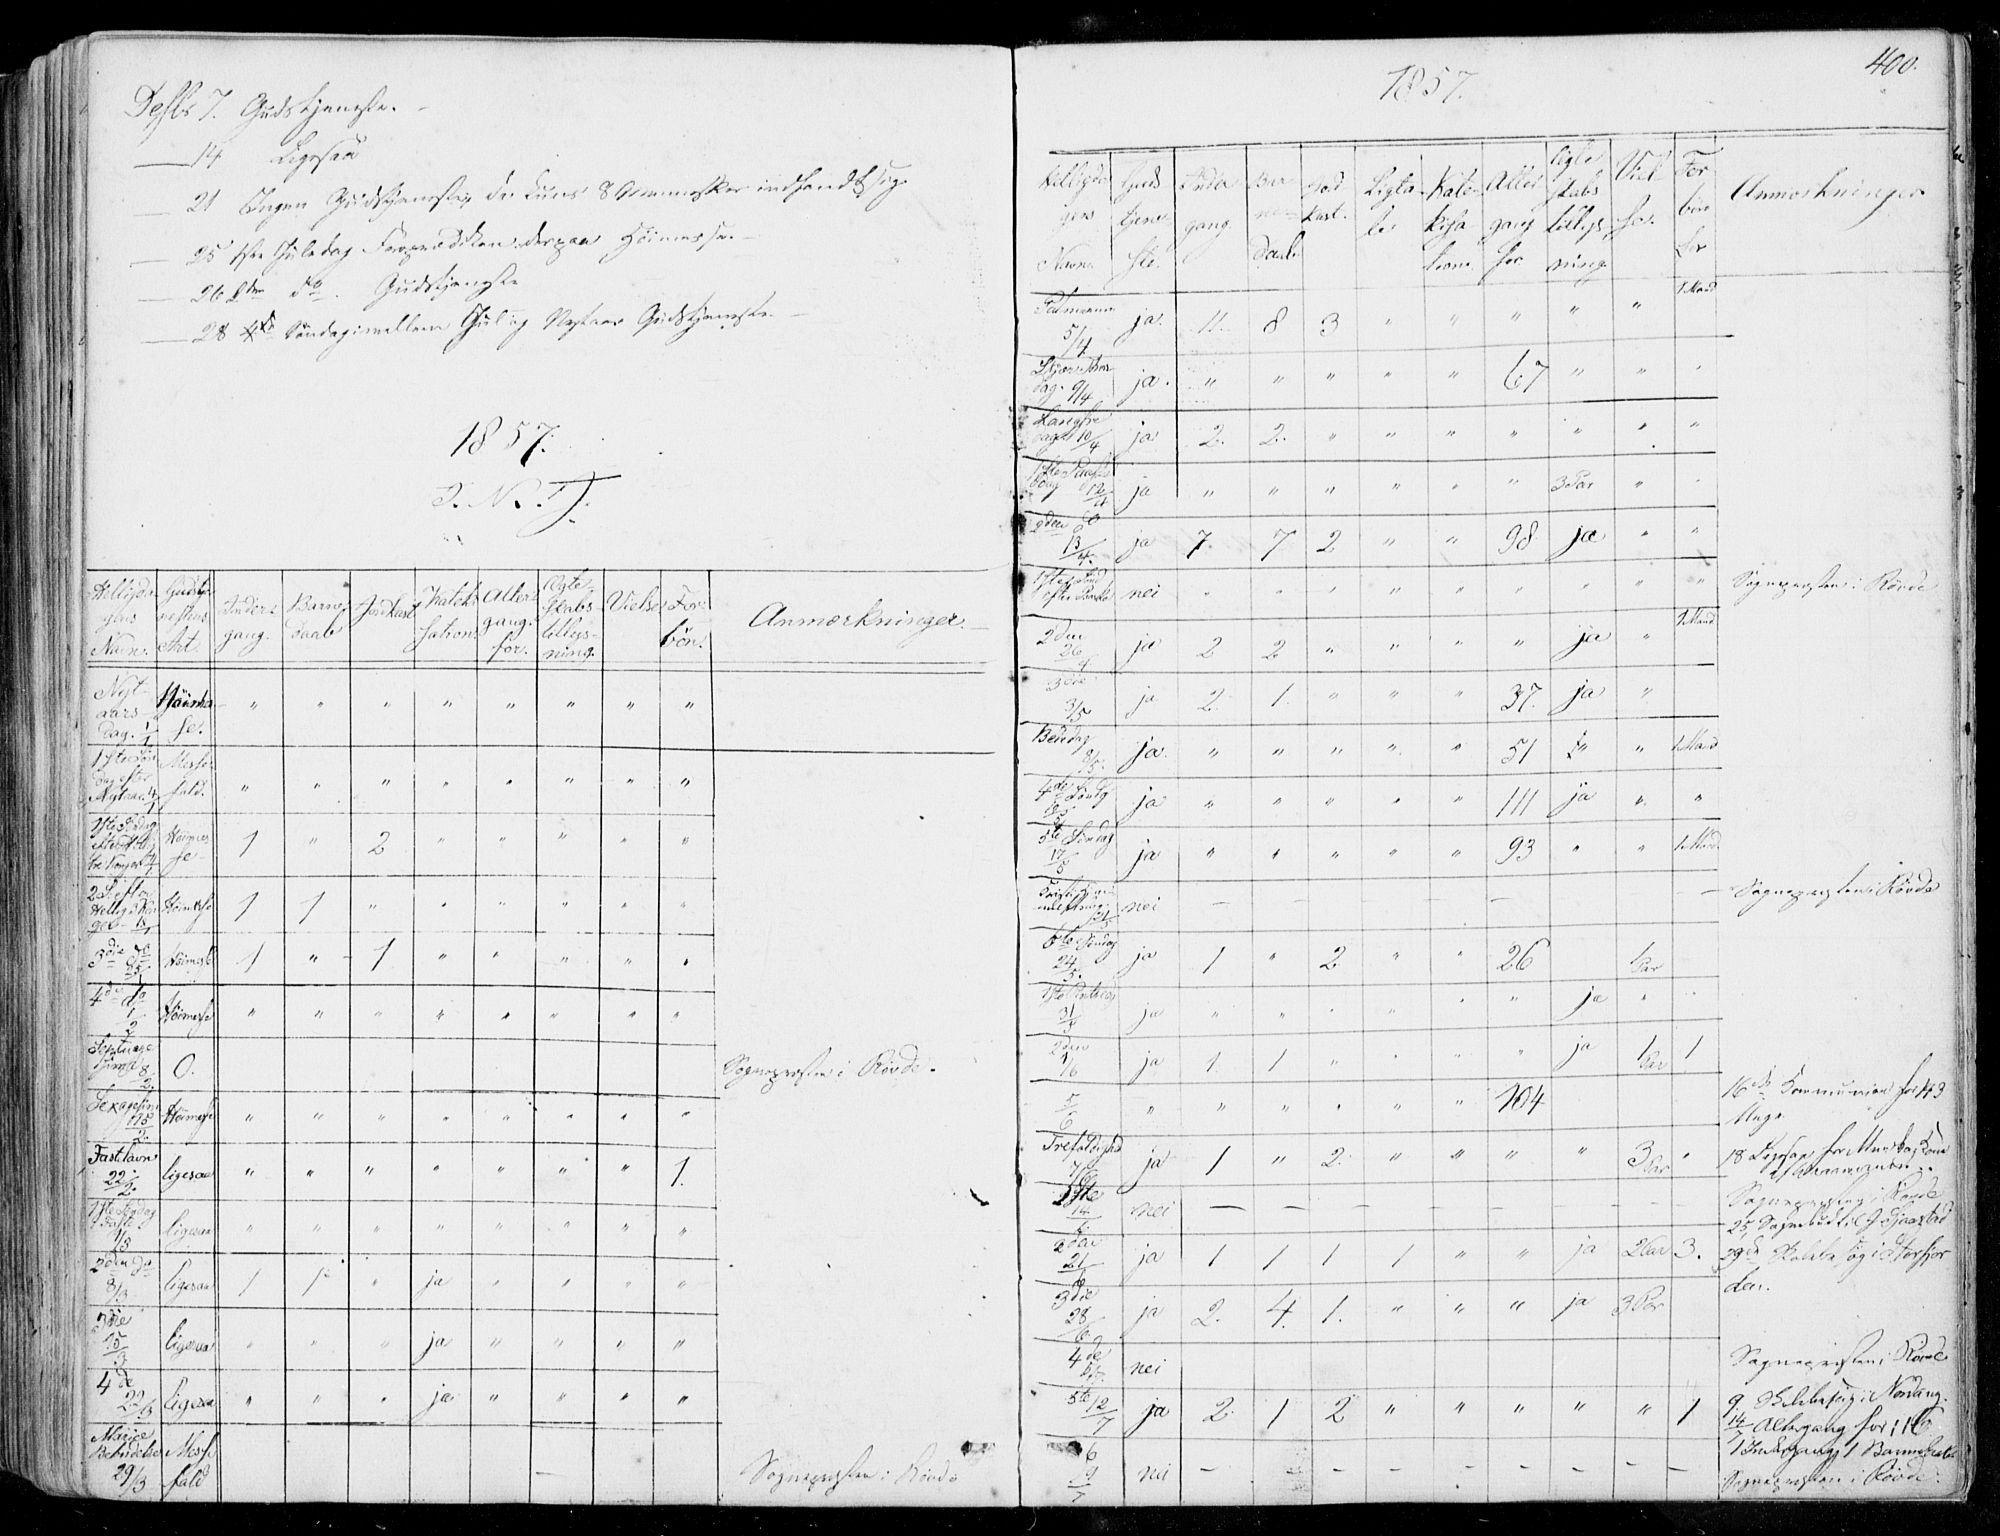 7. Gudstjeneste.
14 Ligesaa
21 Ingen Gudstjeneste, da kuns 8 Mennesker indfandt sig.
25 1ste Juledag Forprædiken derpaa Höimesse.
26 2den do. Gudstjeneste
28 Söndag imellem Jul og Nytaar Gudstjeneste.
1857.
I. N. J.
Helligda gens Navn. | Gudstje nestens Art. | Inder gang. | Barne daab | Jordkast | Kateki sation. | Alter gang. for. | Ægte skabs tillys ning. | Vielse | For bön. | Anmærkninger.
Nyt aars dag. 1/1 | Höimes se. | " | " | " | " | " | " | " | "
1ste Sön dag efter Nytaar 4/1 | Messe fald. | " | " | " | " | " | " | " | "
1ste Söndag efter Hellig tre Konger | Höimes se | 1 | " | 2 | " | " | " | " | "
2 S. efter Hellig 3 Kon ger 18/1 | Höimesse | 1 | 1 | " | " | " | " | " | "
3die do 25/1 | Höimesse | 1 | " | 1 | " | " | " | " | "
4de do 1/2 | Höimesse | " | " | " | " | " | " | " | "
Septuage sima 8/2. | O. | Sognepresten i Rövde.
Sexagesima 15/2. | Höimesse | " | " | " | " | " | " | " | "
Fastelavn 22/2. | ligesaa | " | " | " | " | " | " | " | 1.
1ste Söndag i Faste 1/3 | ligesaa | " | " | " | " | " | " | " | "
2den do 8/3 | ligesaa | 1 | 1 | " | ja | " | " | " | "
3die 15/3 | ligesaa | " | " | " | ja | " | " | " | "
4de 22/3 | ligesaa | " | " | " | ja | " | " | " | "
Mariæ Bebudelse 29/3 | Messe fald | Sognepresten i Rövde
400.
1857.
Helligda gens Navn. | Guds tjene ste. | Inder gang. | Bar ne daab | Jord kast. | Ligta le | Kate kisa tion. | Alter gang for | Ægte skabs tillys ning. | Viel se. | For bön for | Anmærkninger
Palmesön 5/4 | ja. | 11. | 8 | 3 | " | " | " | " | " | 1 Mand
Skjær Thors dag. 9/4 | ja. | " | " | " | " | " | 67 | " | " | "
Langfre dag 10/4 | ja | 2. | 2. | " | " | " | " | " | " | "
1ste Paaske dag 12/4 | ja | " | " | " | " | " | " | 3 Par | " | "
2den do 13/4. | ja | 7. | 7 | 2 | " | " | 98 | ja | " | "
1ste Sönd efter Paaske | nei | " | " | " | " | " | " | " | " | " | Sognepresten i Rövde
2den 26/4 | ja | 2 | 2 | " | " | " | " | ja | " | 1 Mand
3die 3/5 | ja | 2. | 1. | " | " | " | 37. | ja | "
Bededag 8/5. | ja. | " | " | " | " | " | 51 | " | " | 1 Mand
4de Söndg | ja | " | " | " | " | " | 111 | ja | " | "
5te Söndag 17/5 | ja | " | " | " | " | " | 93 | " | " | 1 Mand
Kristi Him melfart 21/5 | nei | – | – | – | – | – | – | – | – | – | Sognepresten i Rövde
6te Söndag 24/5. | ja | 1 | " | 2 | " | " | 26 | 1 Par
1ste Pintsedag 31/5 | ja | " | " | " | " | " | " | ja | " | "
2den 1/6 | ja | 1 | 1 | " | " | " | " | ja | 1 Par | 1
5/6 | " | " | " | " | " | " | 104 | 16de Kommunion for 43 Unge
Trefoldighed 7/6 | ja | 1 | " | 2. | " | " | " | " | 3 Par | " | 18 Ligesaa for
1ste 14/6. | nei | – | – | – | – | – | – | – | – | – | Sognepresten i Rövde
2den 21/6 | ja | 1 | 1 | 1 | 1 | " | " | ja | 2 Par | 3. | 25, Sognebud til J. Sjaastad
3die 28/6 | ja | 2. | 4. | 1. | " | " | " | ja | 3 Par | 29de Skolebesög i Storfjor den.
4de | nei | Sognepresten i Rövde
5te 12/7 | ja | 2. | 1 | 2 | " | " | " | " | " | 1 | 9. Skolebesög i Nordang.
14/7 Altergang for 16
1 Indergang 1 Barnedaab
6 19/7 | nei | – | – | – | – | – | – | – | – | – | Sognepresten i Rövde.